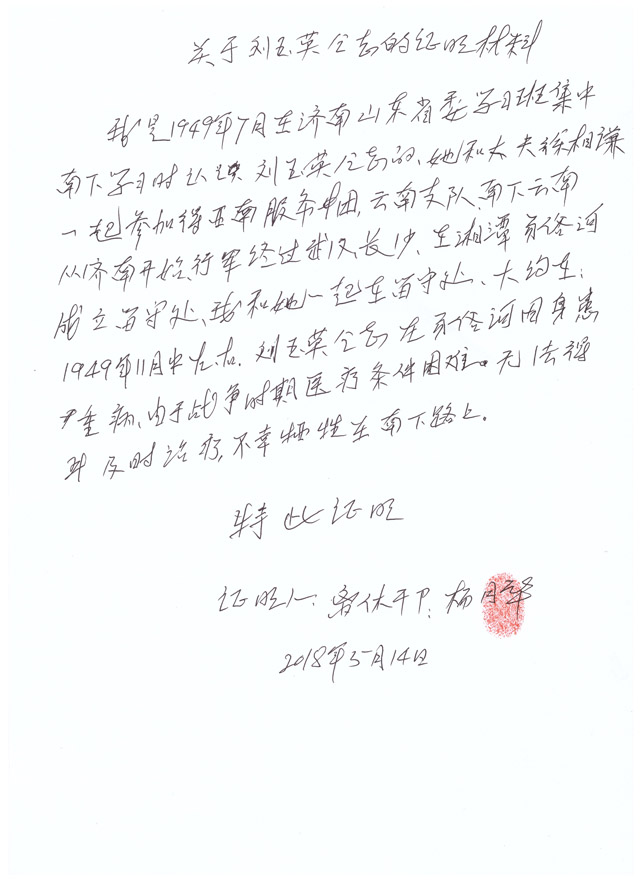 关于刘玉英同志的证明材料
我是1949年7月在济南山东省委学习班集中
南下学习时认识刘玉英同志的，她和丈夫徐相谦
一起参加待西南服务中团，云南支队，南下云南
从济南开始行军经过武汉，长沙，在湘潭易俗河
成立留守处，我和她一起在留守处、大约在：
1949年11月中左右，刘玉英同志在易俗河因身患
严重病，由于战争时期医疗条件困难。无法得
到及时治疗，不幸牺牲在南下路上。
特此证明
证明人：离休干部：杨月
2018年5月14日